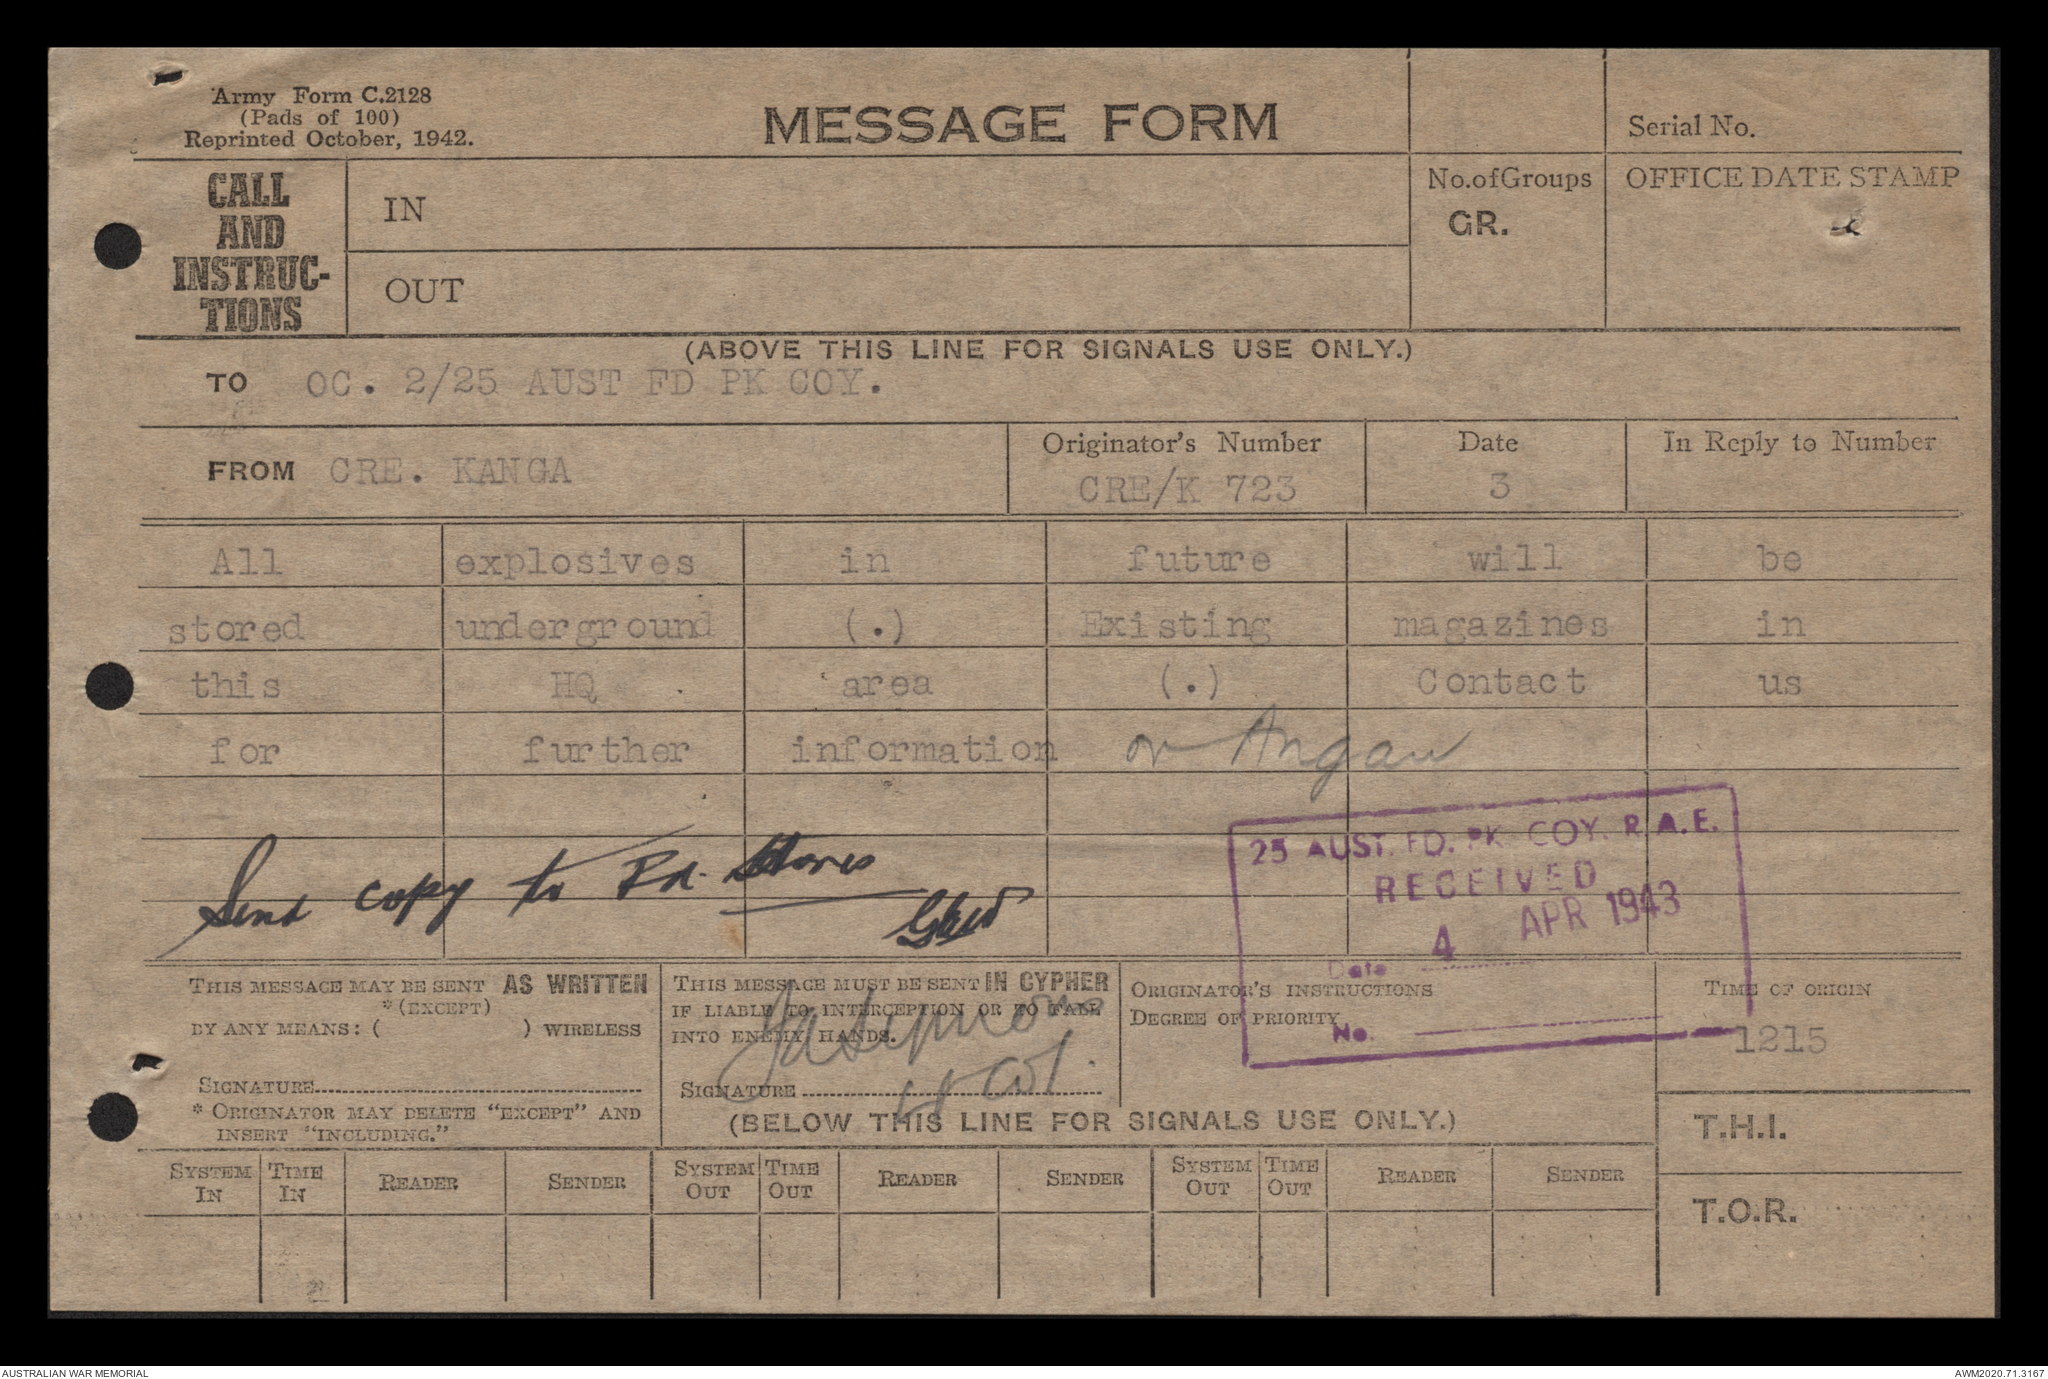 Army Form C.2128
(Pads of 100)
Reprinted October, 1942.
MESSAGE FORM
Serial No.
CALL
AND
INSTRUC-
TIONS
IN
OUT
No. of Groups
GR.
OFFICE DATE STAMP
(ABOVE THIS LINE FOR SIGNALS USE ONLY.)
TO OC. 2/25 AUST FD PK COY.
FROM CRE. KANGA
Originator's Number
CRE/K 723
Date
3
In Reply to Number
All explosives in future will be
stored underground (.) Existing magazines in
this HQ area (.) Contact us
for further information or Angau
Send copy to Pk. Stores
25 AUST. FD. PK. COY. R.A.E.
RECEIVED
4 APR 1943
Date
No.
THIS MESSAGE MAY BE SENT AS WRITTEN
*(EXCEPT)
BY ANY MEANS: ( ) WIRELESS
SIGNATURE
* ORIGINATOR MAY DELETE "EXCEPT" AND
INSERT "INCLUDING."
THIS MESSAGE MUST BE SENT IN CYPHER
IF LIABLE TO INTERCEPTION OR TO FALL
INTO ENEMY HANDS.
Lt Col.
SIGNATURE
ORIGINATOR'S INSTRUCTIONS
DEGREE OF PRIORITY
TIME OF ORIGIN
1215
(BELOW THIS LINE FOR SIGNALS USE ONLY.)
T.H.I.
T.O.R.
SYSTEM IN
TIME IN
READER
SENDER
SYSTEM OUT
TIME OUT
READER
SENDER
SYSTEM OUT
TIME OUT
READER
SENDER
AUSTRALIAN WAR MEMORIAL
AWM2020.71.3167